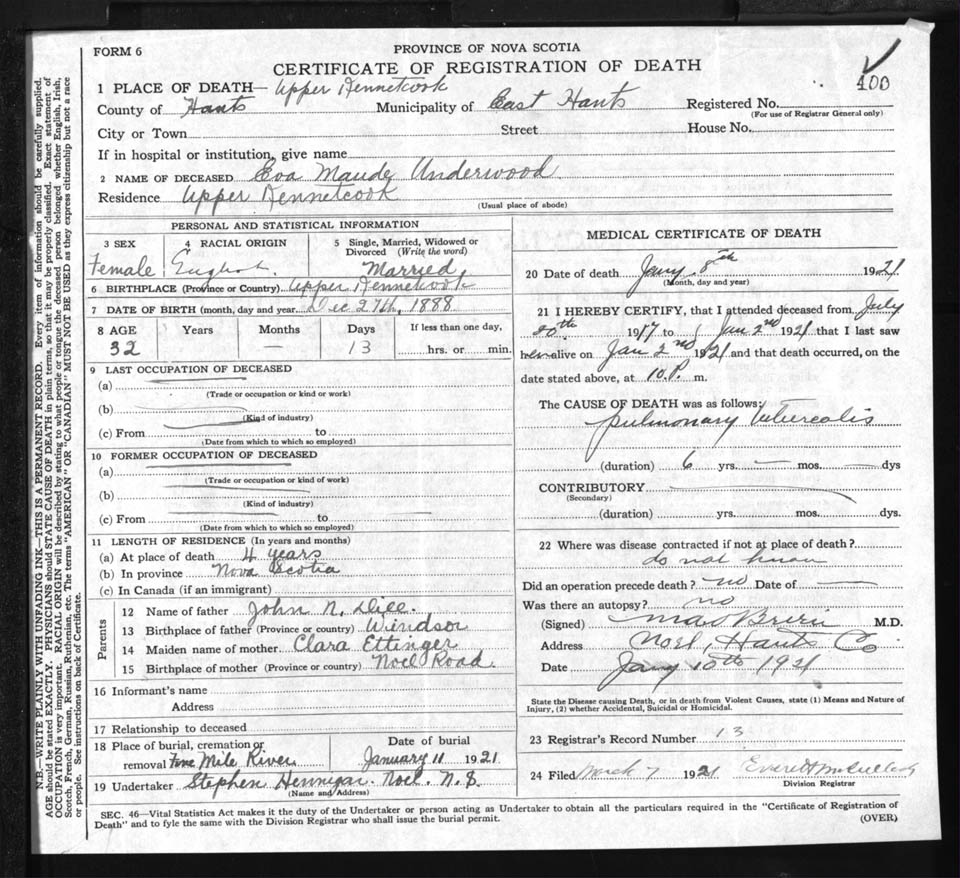 FORM 6
PROVINCE OF NOVA SCOTIA
CERTIFICATE OF REGISTRATION OF DEATH
400
1 PLACE OF DEATH— Upper Kennetcook
County of Hants Municipality of East Hants Registered No.
(For use of Registrar General only)
City or Town Street House No.
If in hospital or institution, give name
2 NAME OF DECEASED Eva Maude Underwood
Residence Upper Kennetcook
(Usual place of abode)
PERSONAL AND STATISTICAL INFORMATION
3 SEX 4 RACIAL ORIGIN 5 Single, Married, Widowed or Divorced (Write the word)
Female English Married
6 BIRTHPLACE (Province or Country) Upper Kennetcook
7 DATE OF BIRTH (month, day and year) Dec 27th, 1888
8 AGE Years Months Days If less than one day,
32 — 13 hrs. or min.
9 LAST OCCUPATION OF DECEASED
(a)
(Trade or occupation or kind or work)
(b)
(Kind of industry)
(c) From to
(Date from which to which so employed)
10 FORMER OCCUPATION OF DECEASED
(a)
(Trade or occupation or kind of work)
(b)
(Kind of industry)
(c) From to
(Date from which to which so employed)
11 LENGTH OF RESIDENCE (In years and months)
(a) At place of death 4 years
(b) In province Nova Scotia
(c) In Canada (if an immigrant)
Parents
12 Name of father John N. Dill.
13 Birthplace of father (Province or country) Windsor
14 Maiden name of mother Clara Ettinger
15 Birthplace of mother (Province or country) Noel Road
16 Informant's name
Address
17 Relationship to deceased
18 Place of burial, cremation or removal Five Mile River
Date of burial January 11 1921
19 Undertaker Stephen Hennigar. Noel. N.S.
(Name and Address)
MEDICAL CERTIFICATE OF DEATH
20 Date of death Jany. 8th 1921
(Month, day and year)
21 I HEREBY CERTIFY, that I attended deceased from July
20th 1917 to Jan 2nd 1921 that I last saw
her alive on Jan 2nd 1921 and that death occurred, on the
date stated above, at 10.P. m.
The CAUSE OF DEATH was as follows:
pulmonary tuberculis
(duration) 6 yrs. — mos. — dys
CONTRIBUTORY
(Secondary)
(duration) yrs. mos. dys.
22 Where was disease contracted if not at place of death?
do not know
Did an operation precede death? no Date of —
Was there an autopsy? no
(Signed) M.D.
Address Noel, Hants Co
Date Jany 10th 1921
State the Disease causing Death, or in death from Violent Causes, state (1) Means and Nature of
Injury, (2) whether Accidental, Suicidal or Homicidal.
23 Registrar's Record Number 13
24 Filed March 7 1921
Division Registrar
SEC. 46—Vital Statistics Act makes it the duty of the Undertaker or person acting as Undertaker to obtain all the particulars required in the "Certificate of Registration of
Death" and to fyle the same with the Division Registrar who shall issue the burial permit.
(OVER)
N.B.—WRITE PLAINLY WITH UNFADING INK—THIS IS A PERMANENT RECORD. Every item of information should be carefully supplied.
AGE should be stated EXACTLY. PHYSICIANS should STATE CAUSE OF DEATH in plain terms, so that it may be properly classified. Exact statement of
OCCUPATION is very important. RACIAL ORIGIN will be described by stating to what people or tongue the deceased person belonged whether English, Irish,
Scotch, French, German, Russian, Ruthenian, etc. The terms "AMERICAN" OR "CANADIAN" MUST NOT BE USED as they express citizenship but not a race
or people. See instructions on back of Certificate.